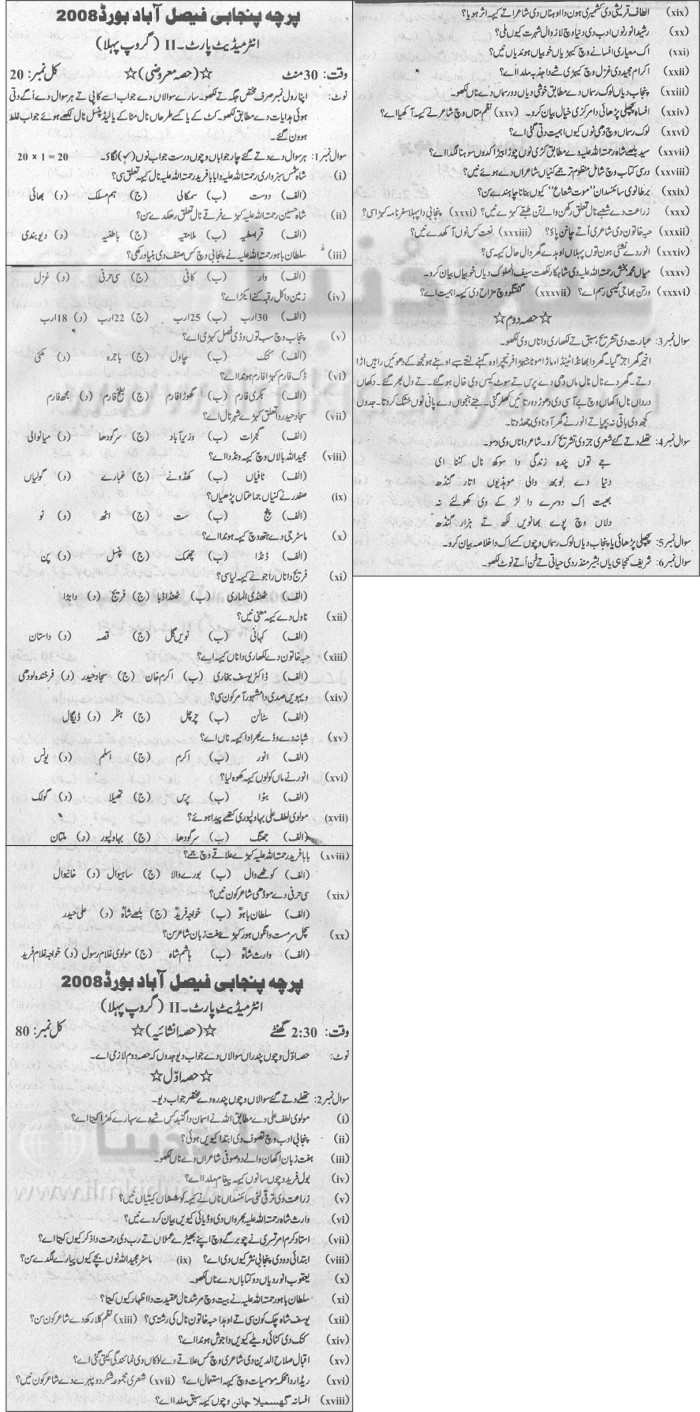 پرچہ پنجابی فیصل آباد بورڈ 2008
انٹرمیڈیٹ پارٹ۔ II (گروپ پہلا)
وقت: 30 منٹ ☆ (حصہ معروضی) ☆ کل نمبر: 20
نوٹ: اپنا رول نمبر صرف مختص جگہ تے لکھو۔ سارے سوالاں دے جواب ایسے کاپی تے ہر سوال دے اگے دتی
ہوئی ہدایات دے مطابق لکھو۔ کٹ کے یا کسے طرحاں نال مٹا کے یا لیڈ پنسل نال لکھے ہوئے جواب غلط
ہوون گے۔
سوال نمبر 1: ہر سوال دے دتے گئے چار جواباں وچوں درست جواب نوں (✓) لگاؤ۔ 20 x 1 = 20
(i) شاہ شمس سبزواری رحمتہ اللہ علیہ دا بابا فرید رحمتہ اللہ علیہ نال کیہ تعلق سی؟
(الف) دوست (ب) ہم مسلک (د) بھائی
(ii) شاہ حسین رحمتہ اللہ علیہ کیہڑے فرقے نال تعلق رکھدے سن؟
(الف) قرامطیہ (ب) ملامتیہ (ج) باطنیہ (د) دیوبندی
(iii) سلطان باہو رحمتہ اللہ علیہ نے پنجابی وچ کس صنف دی بنیاد رکھی؟
(الف) وار (ب) کافی (ج) سی حرفی (د) غزل
(iv) زمین دا کل رقبہ کنے ایکڑ اے؟
(الف) 30 ارب (ب) 25 ارب (ج) 22 ارب (د) 18 ارب
(v) پنجاب وچ سب توں وڈی فصل کیہڑی اے؟
(الف) کنک (ب) چاول (ج) باجرہ (د) مکئی
(vi) ڈک فارم کیہڑا فارم ہوندا اے؟
(الف) بکری فارم (ب) گھوڑا فارم (ج) بطخ فارم (د) مجھ فارم
(vii) سجاد حیدر دا تعلق کیہڑے شہر نال اے؟
(الف) گجرات (ب) وزیر آباد (ج) سرگودھا (د) میانوالی
(viii) مجید اللہ بالاں وچ کیہ ونڈدا اے؟
(الف) ٹافیاں (ب) کھڈونے (ج) غبارے (د) گولیاں
(ix) صفدر نے کنیاں جماعتاں پڑھیاں؟
(الف) پنج (ب) ست (ج) اٹھ (د) نو
(x) ماسٹر جی دے ہتھ وچ کیہ ہوندا اے؟
(الف) ڈنڈا (ب) چھمک (ج) پنسل (د) پن
(xi) فریج دا ناں راجو نے کیہ لیا سی؟
(الف) ٹھنڈی الماری (ب) ٹھنڈا ڈبا (ج) فریج (د) واپڈا
(xii) ناول دے کیہ معنی نیں؟
(الف) کہانی (ب) نویں گل (ج) قصہ (د) داستان
(xiii) حبہ خاتون دے لکھاری دا ناں کیہ اے؟
(الف) ڈاکٹر یوسف بخاری (ب) اکرم خان (ج) سجاد حیدر (د) فرخندہ لودھی
(xiv) ویہویں صدی دا مشہور آمر کون سی؟
(الف) سٹالن (ب) چرچل (ج) ہٹلر (د) ڈیگال
(xv) شبانہ دے وڈے بھرا دا کیہ ناں اے؟
(الف) انور (ب) اکرم (ج) اسلم (د) یونس
(xvi) انور نے ماں کولوں کیہ کھوہ لیا؟
(الف) بٹوا (ب) پرس (ج) تھیلا (د) گولک
(xvii) مولوی لطف علی بہاولپوری کتھے پیدا ہوئے؟
(الف) جھنگ (ب) سرگودھا (ج) بہاولپور (د) ملتان
(xviii) بابا فرید رحمتہ اللہ علیہ کیہڑے علاقے وچ جمے؟
(الف) کوٹھے وال (ب) بورے والا (ج) ساہیوال (د) خانیوال
(xix) سی حرفی دے موڈھی شاعر کون نیں؟
(الف) سلطان باہو (ب) خواجہ فرید (ج) بلھے شاہ (د) علی حیدر
(xx) سچل سرمست وانگوں ہور کیہڑے ہفت زبان شاعر سن؟
(الف) وارث شاہ (ب) ہاشم شاہ (ج) مولوی غلام رسول (د) خواجہ غلام فرید
پرچہ پنجابی فیصل آباد بورڈ 2008
انٹرمیڈیٹ پارٹ۔ II (گروپ پہلا)
وقت: 2:30 گھنٹے ☆ (حصہ انشائیہ) ☆ کل نمبر: 80
نوٹ: حصہ اوّل وچوں پندراں سوالاں دے جواب دیو جدوں کہ حصہ دوم لازمی اے۔
☆ حصہ اوّل ☆
سوال نمبر 2: تھلے دتے گئے سوالاں وچوں پندرہ دے مختصر جواب دیو۔
(i) مولوی لطف علی دے مطابق اللہ نے اسمان دا گنبد کس شے دے سہارے کھڑا کیتا اے؟
(ii) پنجابی ادب وچ تصوف دی ابتدا کیویں ہوئی؟
(iii) ہفت زبان اکھان والے دو صوفی شاعراں دے ناں لکھو۔
(iv) بول فرید وچوں سانوں کیہ پیغام ملدا اے؟
(v) زراعت دی ترقی لئی سائنسداناں نے کیہ کوششاں کیتیاں نیں؟
(vi) وارث شاہ رحمتہ اللہ علیہ بھرواں دی وڈیائی کیویں بیان کردے نیں؟
(vii) استاد کرم امرتسری نے چوبرگے وچ اپنے بھیڑے عملاں تے رب دی رحمت دا ذکر کیوں کیتا اے؟
(viii) ابتدائی دور دی پنجابی نثر کیویں دی اے؟ (ix) ماسٹر مجید اللہ نوں بچے کیوں پیارے لگدے سن؟
(x) یعقوب انور دیاں دو کتاباں دے ناں لکھو۔
(xi) سلطان باہو رحمتہ اللہ علیہ نے بیت وچ مرشد نال عقیدت دا اظہار کیوں کیتا؟
(xii) یوسف شاہ چک کون سی تے اوہدا حبہ خاتون نال کی رشتہ سی؟ (xiii) نظم کلا رکھ دے شاعر کون سن؟
(xiv) کنک دی کٹائی ویلے کیوں دا جوش ہوندا اے؟
(xv) اقبال صلاح الدین دی شاعری وچ کس علاقے دے لوکاں دی نمائندگی کیتی گئی اے؟
(xvi) ریڈار دا محکمہ موسمیات وچ کیہ استعمال اے؟ (xvii) شعری مجموعہ شکر دوپہرے دے شاعر کون نیں؟
(xviii) افسانہ گھسمیلا چانن وچوں کیہ سبق ملدا اے؟
(xix) الطاف قریشی دی کشمیری ہون دا اوہناں دی شاعری تے کیہ اثر ہویا؟
(xx) رشید انور نوں ادب دی دنیا وچ لازوال شہرت کیوں ملی؟
(xxi) اک معیاری افسانے وچ کیہڑیاں خوبیاں ہوندیاں نیں؟
(xxii) اکرام مجید دی غزل وچ کیہڑی شے دا جذبہ ملدا اے؟
(xxiii) پنجاب دیاں لوک رسماں دے مطابق خوشی دیاں دو رسماں دے ناں لکھو۔
(xxiv) افسانہ پچھلی پڑھائی دا مرکزی خیال بیان کرو۔ (xxv) نظم ستاں وچ شاعر نے کیہ آکھیا اے؟
(xxvi) لوک رسماں وچ دھی نوں کیہ اہمیت دتی گئی اے؟
(xxvii) سید بلھے شاہ رحمتہ اللہ علیہ دے مطابق کڑی نوں چوڑا بیڑا کدوں سوہنا لگدا اے؟
(xxviii) درسی کتاب وچ شامل منظوم ترجمے کنیاں شاعراں دے ہوئے نیں؟
(xxix) برطانوی سائنسدان "موت شعاع" کیوں بنانا چاہندے سن؟
(xxx) زراعت دے شعبے نال تعلق رکھن والے تن طبقے کیہڑے نیں؟ (xxxi) پنجابی دا پہلا سفرنامہ کیہڑا سی؟
(xxxii) حبہ خاتون دی شاعری اُتے چانن پاؤ؟ (xxxiii) نعت کس نوں آکھدے نیں؟
(xxxiv) انور دے نشئی ہون توں پہلاں اوہدے گھر دا حال کیہ سی؟
(xxxv) میاں محمد بخش رحمتہ اللہ علیہ دی شاہکار لکھت سیف الملوک دیاں خوبیاں بیان کرو۔
(xxxvi) ورتن بھاجی کیسی رسم اے؟ (xxxvii) گفتگو وچ مزاح دی کیہ اہمیت اے؟
☆ حصہ دوم ☆
سوال نمبر 3: عبارت دی تشریح، سبق تے لکھاری دا ناں وی لکھو۔
اخیر گھر اجڑ گیا۔ گھر دا بھانڈا ٹینڈا
دتے۔ گھر دے نال نال ماں دھی دے پرس تے بوٹ کیس دی خالی ہو گئے۔ تے دل بھر گئے۔ دکھاں
درداں نال اکھاں وچ بے آسی دی دھوڑ ورتا نیں کھلر گئی۔ جنے ہنجواں دے پانی نوں خشک کر دتا۔ جدوں
کجھ وی باقی نہ بچیا تے انور نے گھر آونا وی چھڈ دتا۔
سوال نمبر 4: تھلے دتے گئے شعری جزو دی تشریح کرو۔ شاعر دا ناں وی دسو۔
جے توں پندھ زندگی دا سوکھ نال کٹنا ای
دنیا دے لوبھ والی موڈھیوں اتار گنڈھ
بھیت اک دوسرے دا لڑ کے وی کھولئے نہ
دلاں وچ پوے بھانویں لکھ تے ہزار گنڈھ
سوال نمبر 5: پچھلی پڑھائی یا پنجاب دیاں لوک رسماں وچوں کسے اک دا خلاصہ بیان کرو۔
سوال نمبر 6: شریف کنجاہی یاں بشیر منذر دی حیاتی تے فن اُتے نوٹ لکھو۔